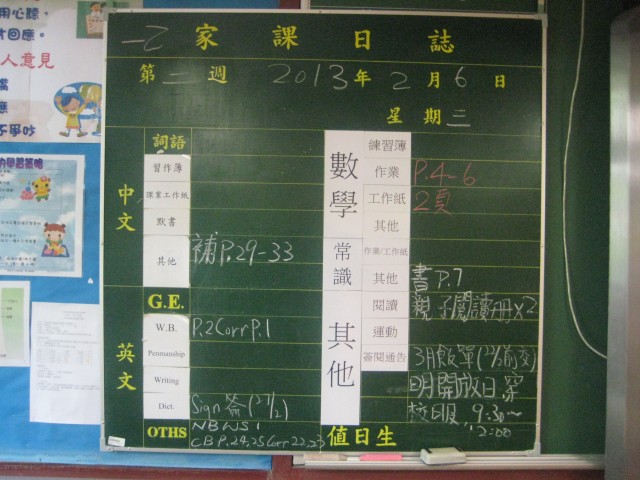 用心聽,
才回應。
人意見
應
不爭吵
一乙 家課日誌
第 二 週 2013 年 2 月 6 日
星期 三
中文
詞語
習作簿
課業工作紙
默書
其他 補P.29-33
英文
G.E.
W.B. P.2 Corr P.1
Penmanship
Writing
Dict. Sign 簽(27/2)
OTHS NB WS 1
CB P.24,25 Corr 22,23
數學
練習簿
作業 P.4-6
工作紙 2頁
其他
常識
作業/工作紙
其他 書P.7
其他
閱讀 親子閱讀冊x2
運動
簽閱通告 3月飯單(22/2前交)
明開放日,穿
校服 9:30~
12:00
值日生